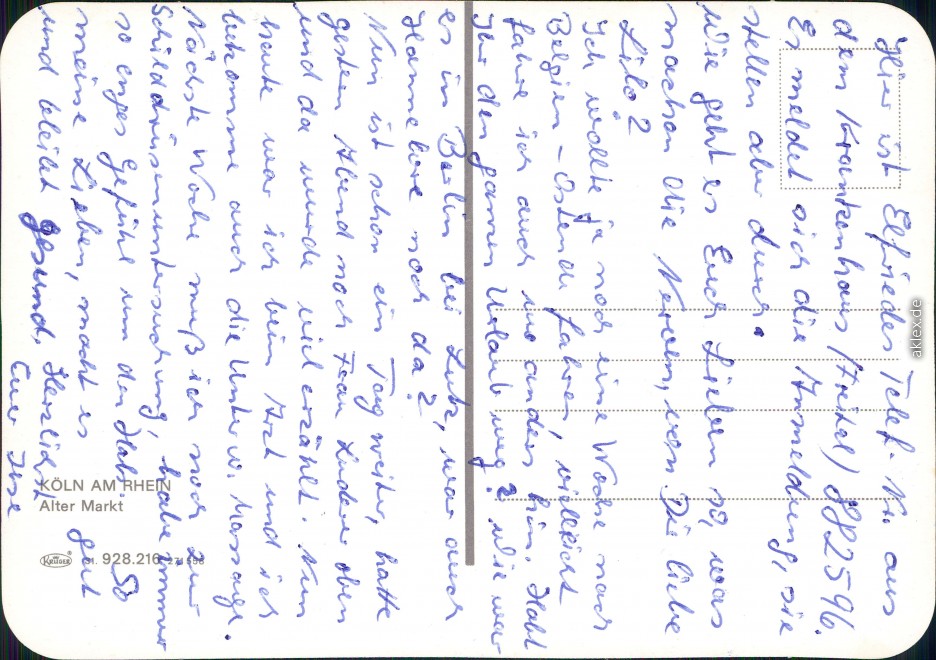 Hier ist Elfriedes Telef. Nr. aus
dem Krankenhaus (Freital) 882596.
Es meldet sich die Anmeldung, sie
stellen aber durch.
Wie geht es Euch Lieben so, was
machen die Nerven, von Dir liebe
Lilo?
Ich wollte ja noch eine Woche nach
Belgien - Ostende fahren, vielleicht
fahre ich auch wo anders hin. Habt
Ihr den ganzen Urlaub weg? Wie war
es in Berlin bei Lutz, war auch
Hannelore noch da?
Nun ist schon ein Tag weiter, hatte
gestern Abend noch Frau Luder oben
und da wurde viel erzählt. Nun
heute war ich beim Arzt und ich
bekomme auch die Unterw. Massage.
Nächste Woche muß ich noch zur
Schilddrüsenuntersuchung, habe immer
so enges Gefühl um den Hals. So
meine Lieben, macht es gut
und bleibt gesund, Herzlichst
Eure Ilse
KÖLN AM RHEIN
Alter Markt
KRÜGER
928.216
aklex.de